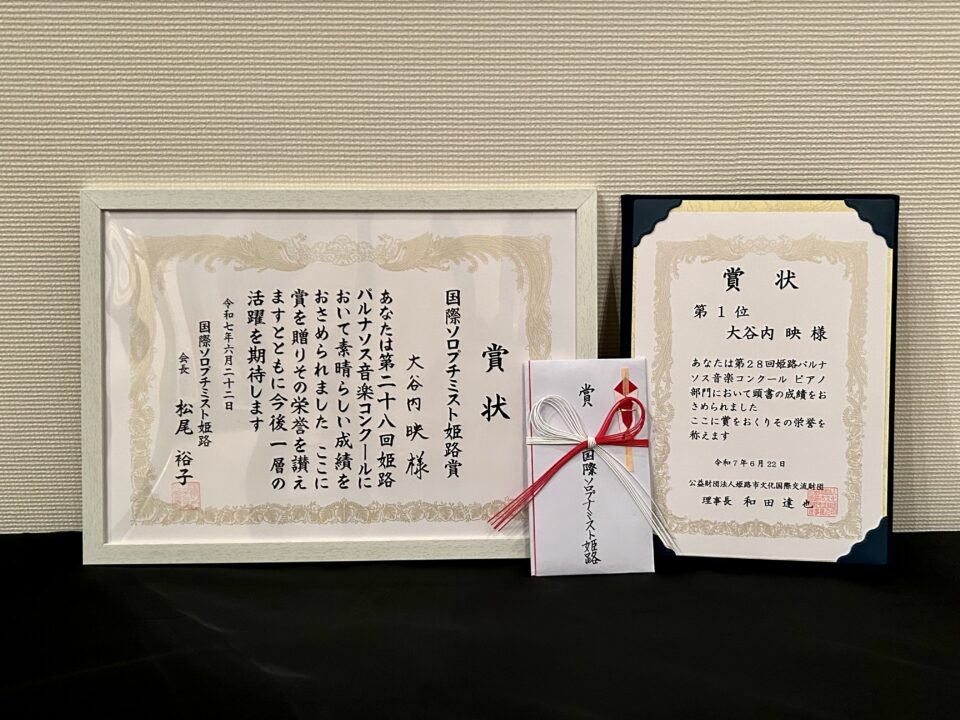 賞状
国際ソロプチミスト姫路賞
大谷内 映 様
あなたは第二十八回姫路
パルナソス音楽コンクールに
おいて素晴らしい成績を
おさめられました ここに
賞を贈りその栄誉を讃え
ますとともに今後一層の
活躍を期待します
令和七年六月二十二日
国際ソロプチミスト姫路
会長 松尾 裕子
賞
国際ソロプチミスト姫路
賞状
第1位
大谷内 映 様
あなたは第28回姫路パルナ
ソス音楽コンクール ピアノ
部門において頭書の成績をお
さめられました
ここに賞をおくりその栄誉を
称えます
令和7年6月22日
公益財団法人姫路市文化国際交流財団
理事長 和田 達也